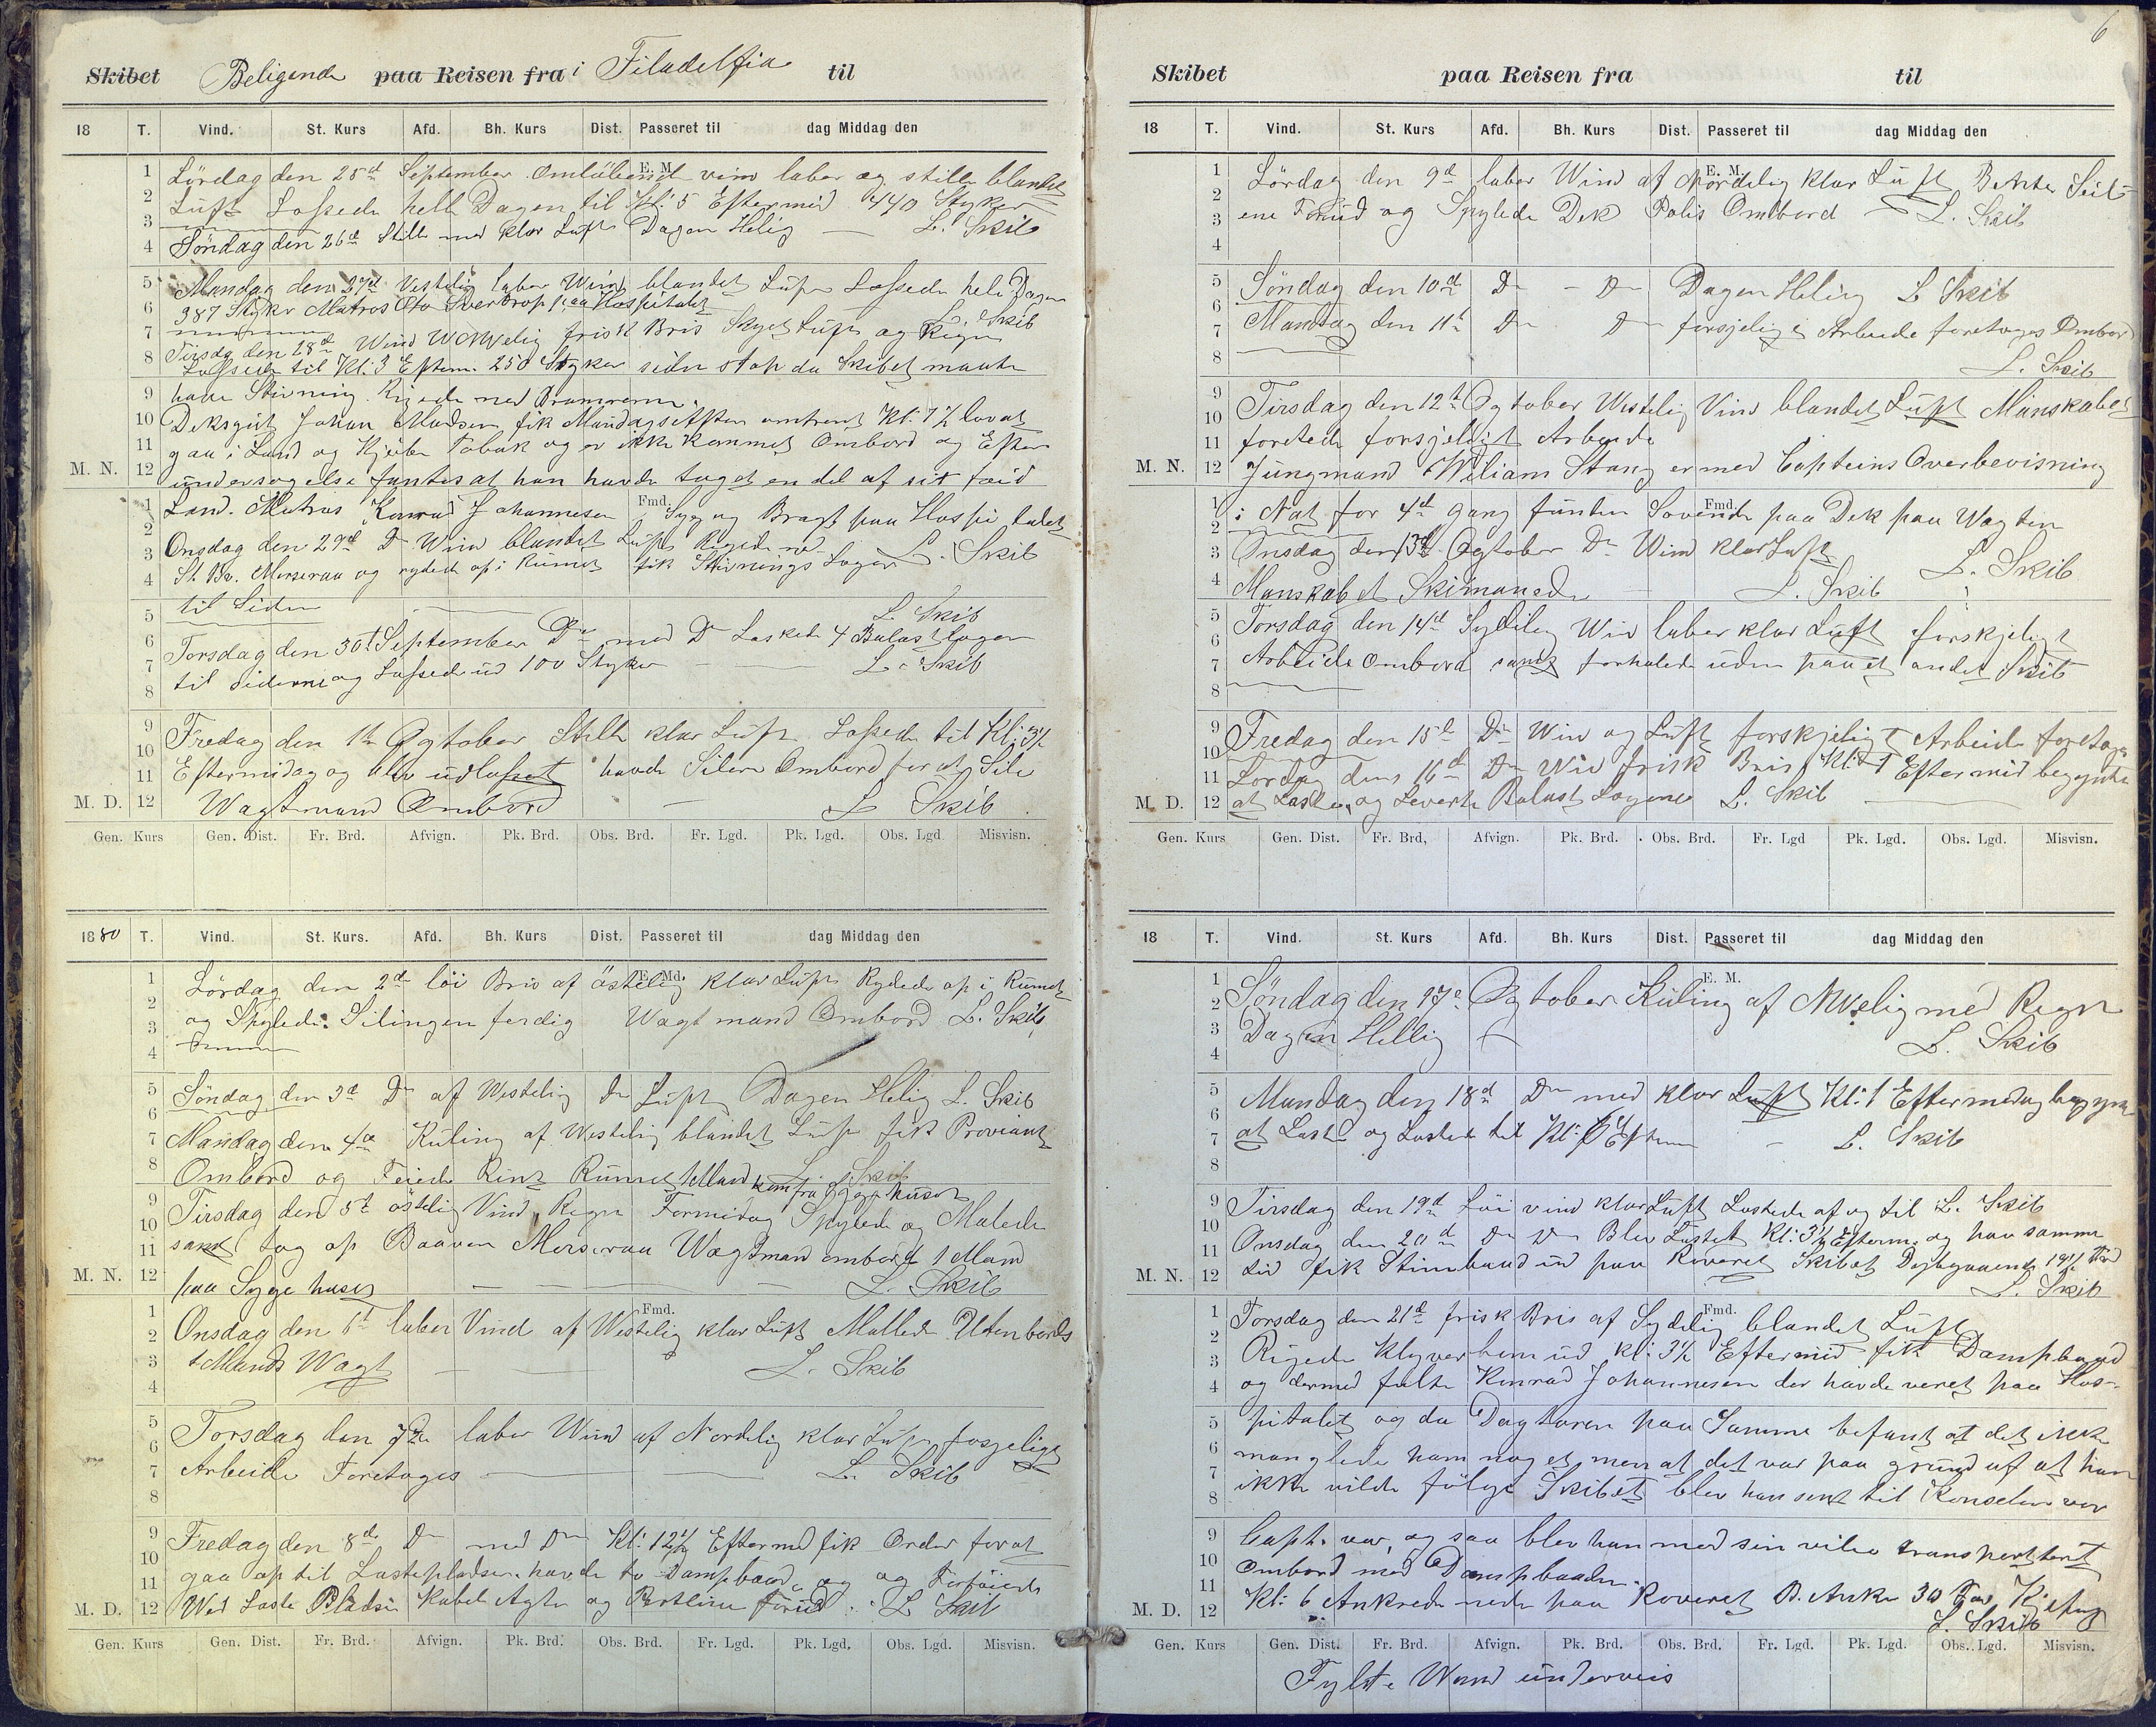 Skibet Beligende paa Reisen fra i Filadelfia til
18 T. Vind. St. Kurs Afd. Bh. Kurs Dist. Passeret til dag Middag den
E. M.
Lördag den 25d September Omlöbend vind laber og stille blandet
Luft Lossede hele Dagen til Kl: 5 Eftermid 440 Styker
Söndag den 26d Stille med klar Luft Dagen Helig — L. Skib
Mandag den 27d Vestelig laber Wind blandet Luft Lossede hele Dagen
387 Stykr Matros Oto Sverdrop paa Hospitalet L. Skib
Tirsdag den 28d Wind WNWelig frisk Bris Skyet Luft og Regn
Lossede til Kl: 3 Efterm. 250 Styker siden stop da Skibet maatte
have Stivning. Rigede ned Bramrerne.
Deksgut Johan Madsen fik Mandags Aften omtrent Kl: 7½ lov at
gaa i Land og Kjöbe Tobak og er ikke kommet Ombord og Efter
M. N. undersøgelse fantes at han havde taget en del af sit töid
Fmd.
Land. Matros Konrad Johannesen Syg og Bragt paa Hospitalet
Onsdag den 29d Do Wind blandet Luft Rigede ned
St. Br. Merseraa og rydede op i Rumet fik Stivnings Loger L. Skib
til Siden
L. Skib
Torsdag den 30t September Do med Do Laskede 4 Balastloger
til siderne og Lossede ud 100 Styker — L. Skib
Fredag den 1te Ogtober Stille klar Luft Lossede til Kl: 3½
Eftermidag og blev udlosset havde Silere Ombord for at Sile
M. D. Wagtmand Ombord — L Skib.
Gen. Kurs Gen. Dist. Fr. Brd. Afvign. Pk. Brd. Obs. Brd. Fr. Lgd. Pk. Lgd. Obs. Lgd. Misvisn.
1880 T. Vind. St. Kurs. Afd. Bh. Kurs Dist. Passeret til dag Middag den
E. Md.
Lördag den 2d löi Bris af östelig klar Luft Rydede op i Rumet
og Spylede. Silingen ferdig Wagtmand Ombord L. Skib
Söndag den 3d Do af Westelig Do Luft Dagen Helig L. Skib
Mandag den 4de Kuling af Westelig blandet Luft fik Proviant
Ombord og Feiede Rent Rumet 1 Mand kom fra Sygehuset L. Skib
Tirsdag den 5t östelig Vind, Regn Formidag Spylede og Malede
samt tog op Baaven Merseraa Wagtman ombord 1 Mand
M. N. paa Sygehuset — L. Skib
Fmd.
Onsdag den 6t laber Vind af Westelig klar Luft Mallede Utenbords
1 Mands Wagt — L. Skib
Torsdag den 7de laber Wind af Nordelig klar Luft fosjeligt
Arbeide Foretoges — L. Skib
Fredag den 8de Do med Do Kl: 12½ Eftermd fik Order for at
gaa op til Lastepladsen havde to Dampbaade og Fortöiede
M. D. Wed Laste Pladsen Kabel Agter og Pertline forud. L Skib
Gen. Kurs Gen. Dist. Fr. Brd. Afvign. Pk. Brd. Obs. Brd. Fr. Lgd. Pk. Lgd. Obs. Lgd. Misvisn.
6
Skibet paa Reisen fra til
18 T. Vind. St. Kurs Afd. Bh. Kurs Dist. Passeret til dag Middag den
E. M.
Lördag den 9d laber Wind af Nordelig klar Luft Bekte Seil-
ene Forud og Spylede Dek Polis Ombord L. Skib
Söndag den 10d Do - Do Dagen Helig L Skib
Mandag den 11t Do Do forsjelig Arbeide foretoges Ombord
L. Skib
Tirsdag den 12t Ogtober Westelig Vind blandet Luft Manskabet
foretede forsjeligt Arbeide
M. N. Jungmand Wiliam Stang er med Capteins Overbevisning
Fmd.
i Nat for 4d gang funden Sovende paa Dek paa Wagten
Onsdag den 13d Ogtober Do Wind klar Luft L. Skib
Manskabet Skimanede L. Skib
Torsdag den 14d Sydelig Win laber klar Luft forskjeligt
Arbeide ombord samt forhalede uden paa et andet Skib
Fredag den 15d Do Win og Luft forskjeligt Arbeide foretoges
Lördag dens 16d Do Win frisk Bris Kl: 1 Eftermid begynte
M. D. at Laste, og Leverte Balast Logene L. Skib
Gen. Kurs Gen. Dist. Fr. Brd, Afvign. Pk. Brd. Obs. Brd. Fr. Lgd Pk. Lgd. Obs. Lgd. Misvisn.
18 T. Vind. St. Kurs Afd. Bh. Kurs Dist. Passeret til dag Middag den
E. M.
Söndag den 17de Ogtober Kuling af NWelig med Regn
Dagen Hellig L. Skib
Mandag den 18d Do med klar Luft Kl: 1 Eftermidag begynte
at Laste og Lastede til Kl: 6 Efterm — L. Skib
Tirsdag den 19d Löi vind klar Luft Lastede af og til L. Skib
Onsdag den 20d Do Do Blev Lastet Kl: 3½ Efterm. og har samme
M. N. tid fik Stimbaad ud paa Roveret Skibet Dybgaaende 19½ Fod
L. Skib
Fmd.
Torsdag den 21d frisk Bris af Sydelig blandet Luft
Rigede Klyverbom ud Kl: 3½ Eftermid fik Dampbaad
og dermed fulte Konrad Johannesen der havde veret paa Hos-
pitalet og da Dagtoren paa Samme befant at det ikke
manglede ham noget, men at det var paa grund af at han
ikke vilde fölge Skibet blev han sent til Konselen vor
Capt. var, og saa blev han med sin vilie transporttert
Ombord med Dampbaaden.
M. D. Kl: 6 Ankrede nede paa Roveret B. Anker 30 Fav Kjeting
L. Skib
Gen. Kurs Gen. Dist. Fr. Brd. Afvign. Pk. Brd. Obs. Brd. Fr. Lgd. Pk. Lgd. Obs. Lgd. Misvisn.
Fylte Wand underveis